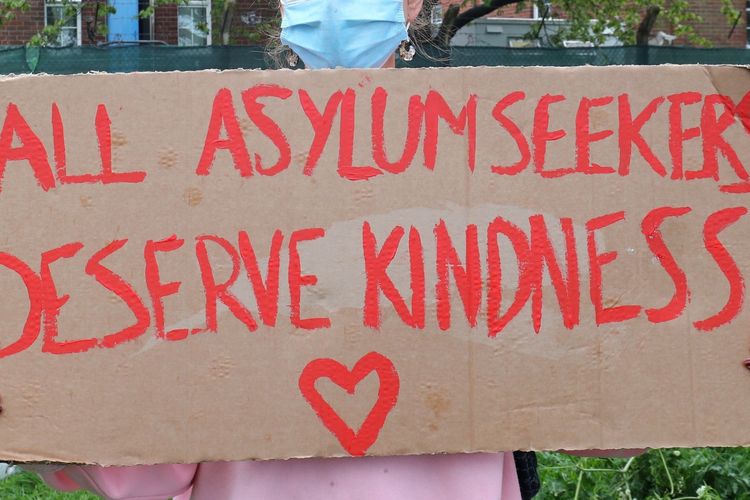 ALL ASYLUM SEEKERS
DESERVE KINDNESS